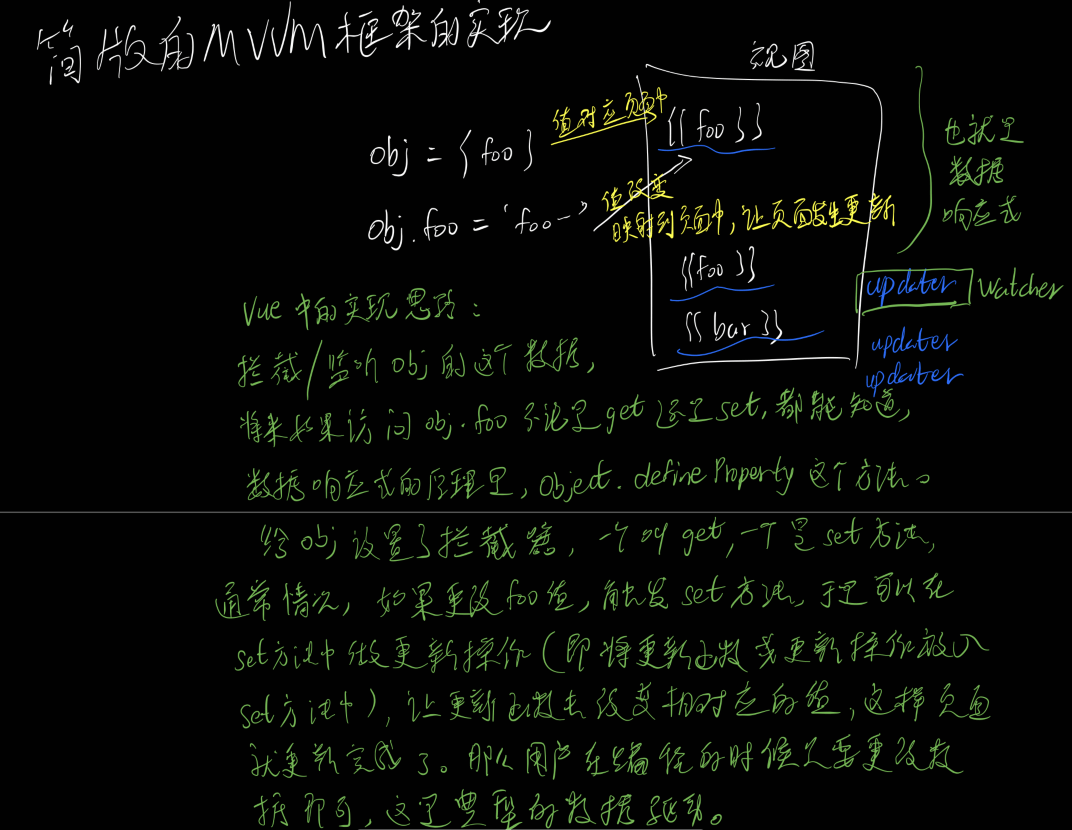 简版的MVVM框架的实现
视图
obj = {foo}
值对应页面中
{{foo}}
也就是
数据
响应式
obj.foo = 'foo一'
值改变
映射到页面中，让页面发生更新
{{foo}}
updater
watcher
{{bar}}
updater
updater
Vue中的实现思路：
拦截/监听obj的这个数据，
将来如果访问obj.foo不论是get还是set，都能知道，
数据响应式的原理是，Object.defineProperty这个方法。
给obj设置了拦截器，一个叫get，一个是set方法，
通常情况，如果更改foo值，触发set方法，于是可以在
set方法中做更新操作（即将更新函数或更新操作放入
set方法中），让更新函数去改变相对应的值，这样页面
就更新完成了。那么用户在编程的时候只需要更改数
据即可，这是典型的数据驱动。